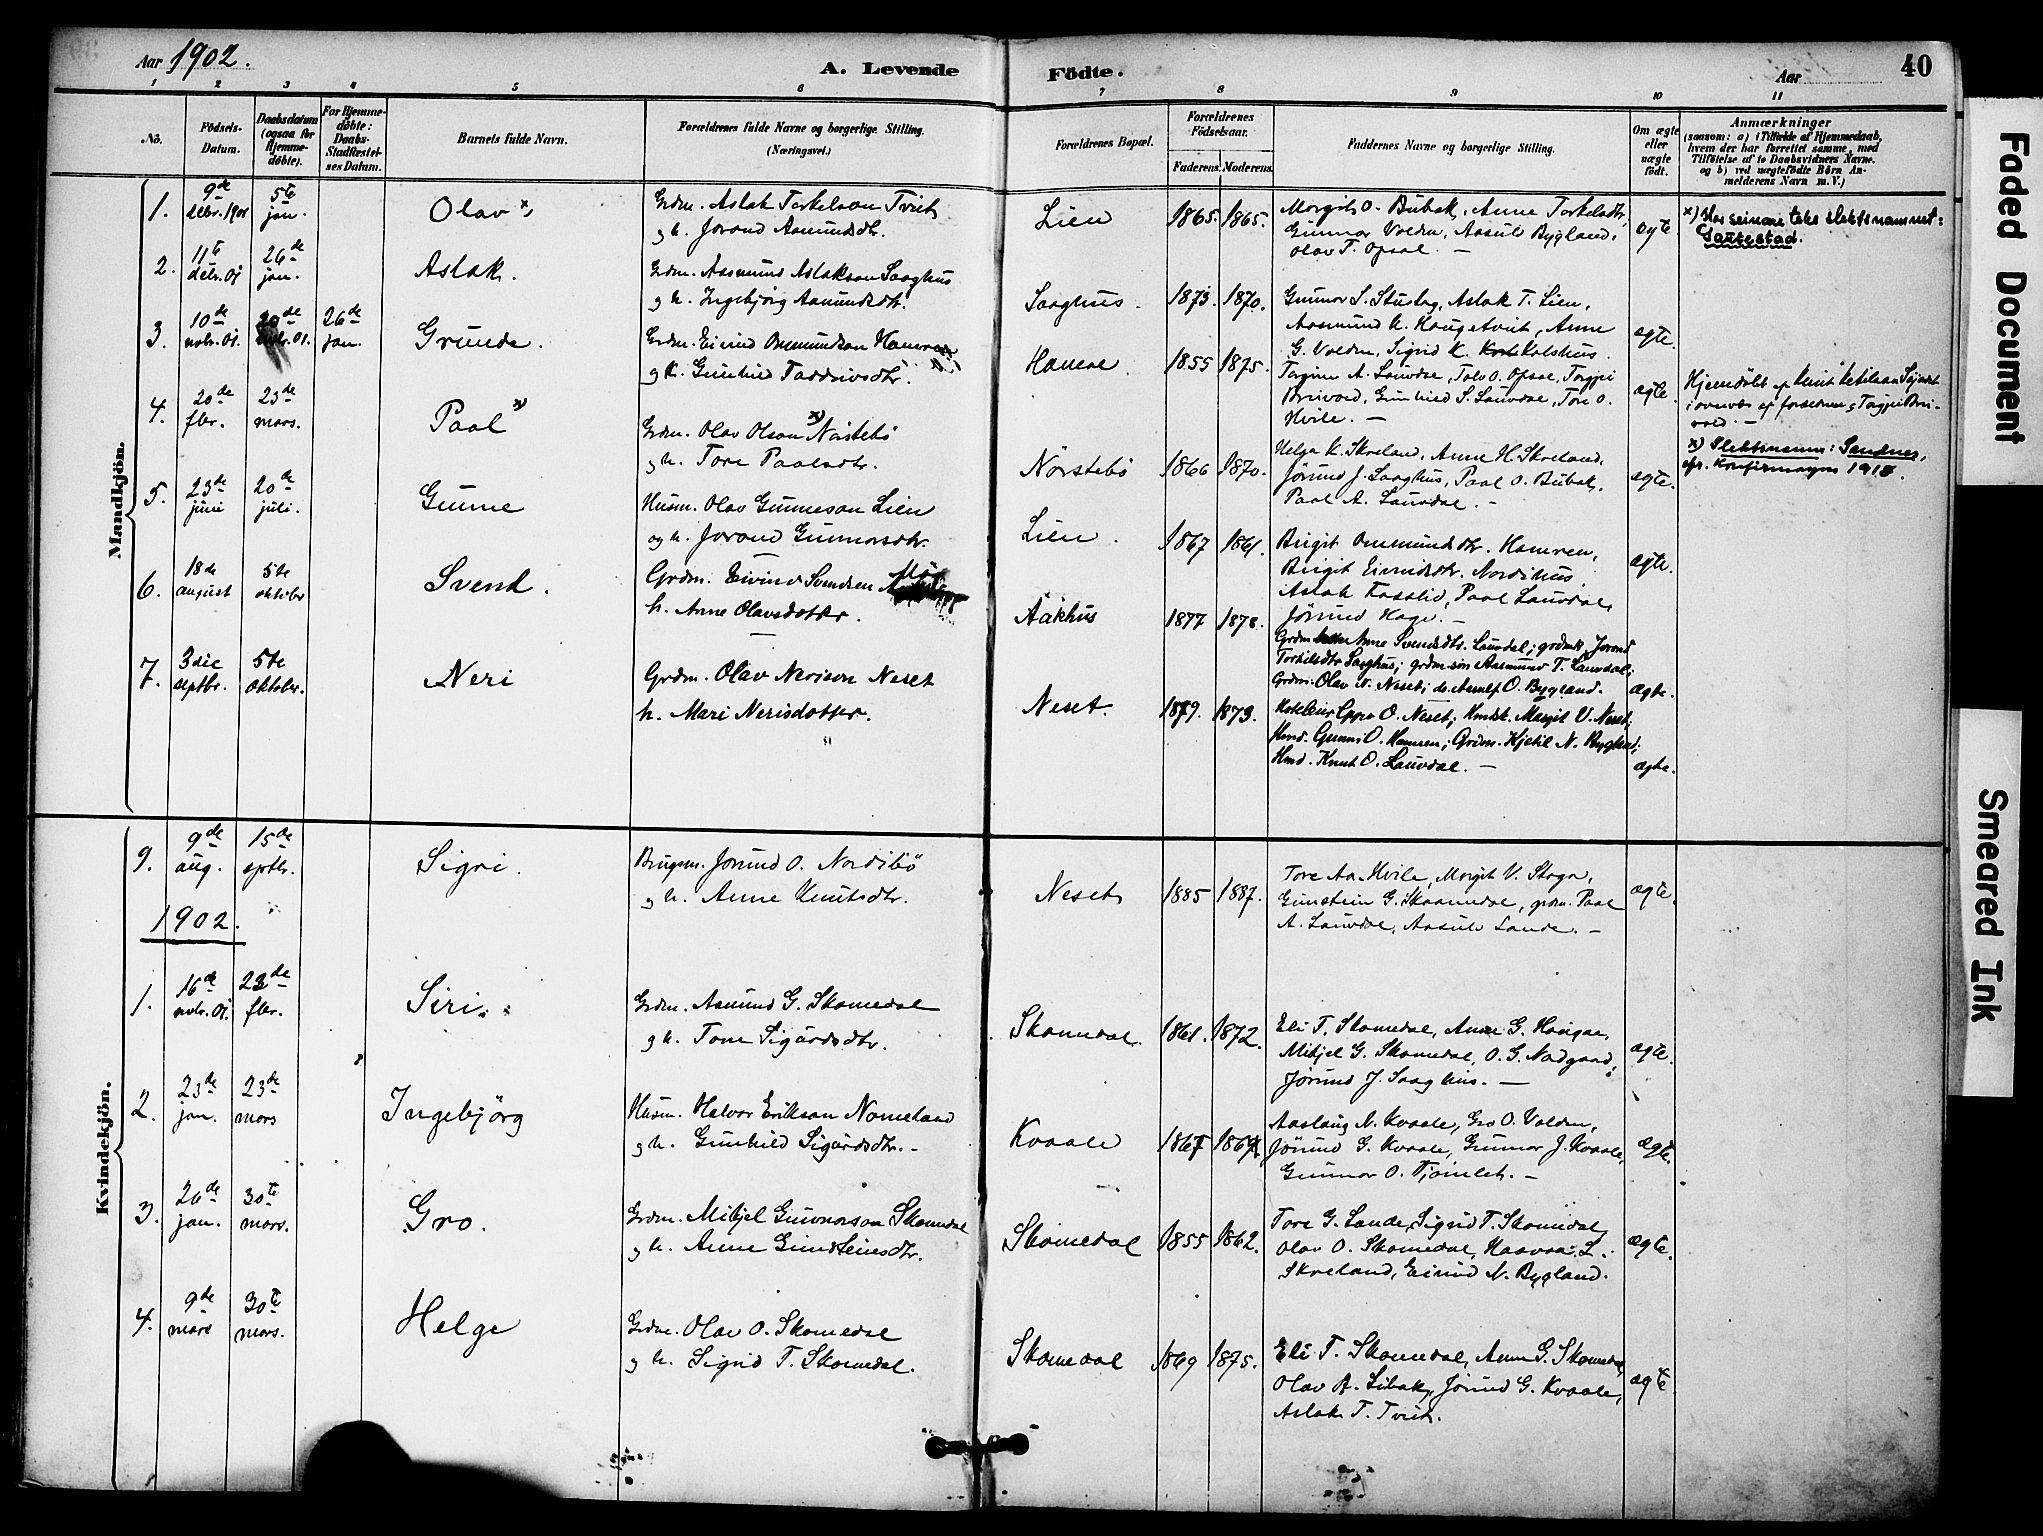 Aar 1902.
A. Levende Födte.
Aar
40
1 2 3 4 5 6 7 8 9 10 11
Nö.
Födsels-Datum.
Daabsdatum (ogsaa for Hjemme-döbte).
For Hjemme-döbte: Daabs-Stadfæstel-ses Datum.
Barnets fulde Navn.
Forældrenes fulde Navne og borgerlige Stilling.
(Næringsvei.)
Forældrenes Bopæl.
Forældrenes Födselsaar.
Faderens. Moderens.
Faddernes Navne og borgerlige Stilling.
Om ægte eller uægte födt.
Anmærkninger
(saasom: a) i Tilfælde af Hjemmedaab,
hvem der har forrettet samme, med
Tilföielse af to Daabsvidners Navne.
og b) ved uægtefödte Börn An-
melderens Navn m. V.)
Mandkjön.
1. 9de decbr. 1901 5te jan. Olav x)
Grdm. Aslak Torkelson Tveit
og h. Jorand Aamundsdtr.
Lien 1865. 1865.
Margit O. Bubak, Anne Torkelsdtr,
Gunnar Volden, Aasulv Bygland,
Olav T. Opsal. —
ægte.
x) Har seinare teke slektsnamnet:
Sautestad.
2. 11te decbr. 01 26de jan. Aslak.
Grdm. Aasmund Aslakson Saaghus
og h. Ingebjörg Aamundsdtr.
Saaghus. 1873. 1870.
Gunnar S. Stustag, Aslak T. Lien,
Aasmund K. Haugetveit, Anne
G. Volden, Sigrid K. Kalshus.
ægte.
3. 10de novbr. 01. 20de novbr. 01. 26de jan. Grunde.
Grdm. Eivind Ommundson Hamren
og h. Gunhild Taddeivsdtr.
Hamre 1855 1875.
Torgine A. Lauvdal, Tolv O. Opsal, Torgjei
Breivold, Gunhild S. Lauvdal, Tore O.
Hvile. —
ægte.
Hjemdöbt af Knut Ketilson
i overvær af forældrene & Torgjei Brei-
vold. —
4. 20de fbr. 23de mars. Paal x)
Grdm. Olav Olson x) Nörstebö
og h. Tore Paalsdtr.
Nörstebö 1866 1870.
Helga K. Skreland, Anne H. Skreland,
Jörund J. Saaghus, Paal O. Bubak,
Paal A. Lauvdal. —
ægte.
x) Slektsnamn: Sandnes,
cfr. Konfirmasjon 1918.
5. 23de juni 20de juli. Gunne
Husm. Olav Gunneson Lien
og h. Jorand Gunnarsdtr.
Lien. 1867 1861.
Birgit Ommundsdtr. Hamren,
Birgit Eivindsdtr. Nordihus,
Aslak Fasslid, Paal Lauvdal,
Jörund Hage. —
ægte.
6. 18de august 5te oktober Svend.
Grdm. Eivind Svendsen
h. Anne Olavsdotter.
Aakhus 1877 1878.
Grdm Anne Svendsdtr. Lauvdal; grdmk. Jorand
Torkilsdtr Saaghus; grdm.sön Aasmund T. Lauvdal;
Grdm. Olav N. Neset; ds. Arnulf O. Bygland.
ægte.
7. 3die septbr. 5te oktober. Neri
Grdm. Olav Nerison Neset
h. Mari Nerisdotter.
Neset. 1879. 1873.
O. Neset; Kmdsk. Margit V. Neset;
Hmd. Gunne O. Hamren; Grdm. Kjetil N. Bygland;
Hmd. Knut O. Lauvdal. —
ægte.
Kvindekjön.
9. 9de aug. 15de septbr. Sigri.
Brugsm. Jörund O. Nordibö
og h. Anne Knutsdtr.
Neset 1885 1887.
Tore Aa. Hvile, Margit V. Stagn,
Gunstein G. Skaamedal, grdm. Paal
A. Lauvdal, Aasulv Sande. —
ægte.
1902.
1. 16de novbr. 01. 23de fbr. Siri.
Grdm. Aamund G. Skomedal
og h. Tone Sigurdsdtr.
Skomedal. 1861. 1872.
Eli T. Skomedal, Anne G. Haugaa,
Mikjel G. Skomedal, O. G. Nodgaard,
Jörund J. Saaghus. —
ægte.
2. 23de jan. 23de mars Ingebjörg
Husm. Halvor Erikson Nomeland
og h. Gunhild Sigurdsdtr. -
Kvaale
Aaslaug N. Kvaale, Gro O. Volden,
Jörund G. Kvaale, Gunnar J. Kvaale,
Gunnar O. Tjomlet. -
ægte.
3. 26de jan. 30te mars. Gro.
Grdm. Mikjel Gunnarson Skomedal
og h. Anne Gundsteinsdtr.
Skomedal 1855 1862.
Tore G. Sande, Sigrid T. Skomedal,
Olav O. Skomedal, Haavor L.
Skreland, Eivind N. Bygland.
ægte.
4. 9de mars 30te mars. Helge
Grdm. Olav O. Skomedal
og h. Sigrid T. Skomedal.
Skomedal 1869 1875.
Eli T. Skomedal, Anne G. Skomedal,
Olav A. Libak, Jörund G. Kvaale,
Aslak T. Tveit.
ægte
Faded Document
Smeared Ink